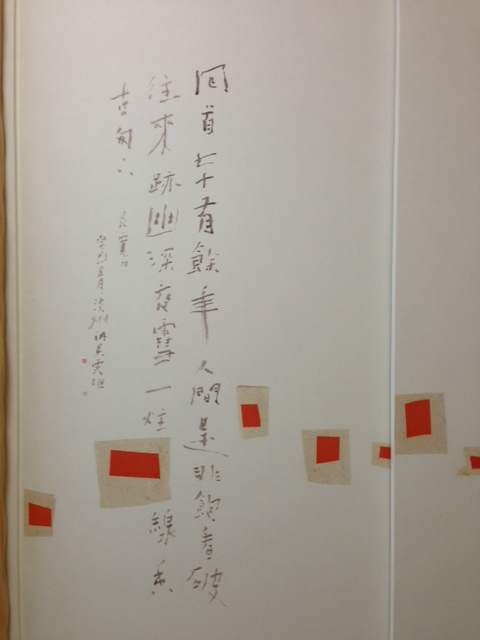 回首七十有餘年人間是非飽看破
往來跡幽深夜雪一炷線香
古匆下 良寛